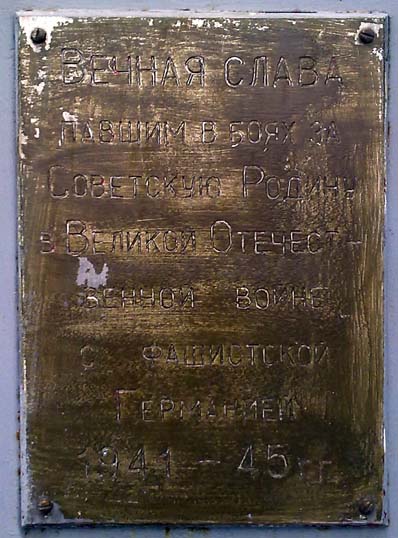 Вечная слава
павшим в боях за
Советскую Родину
в Великой Отечест-
венной войне
с фашистской
Германией
1941 – 45 гг.